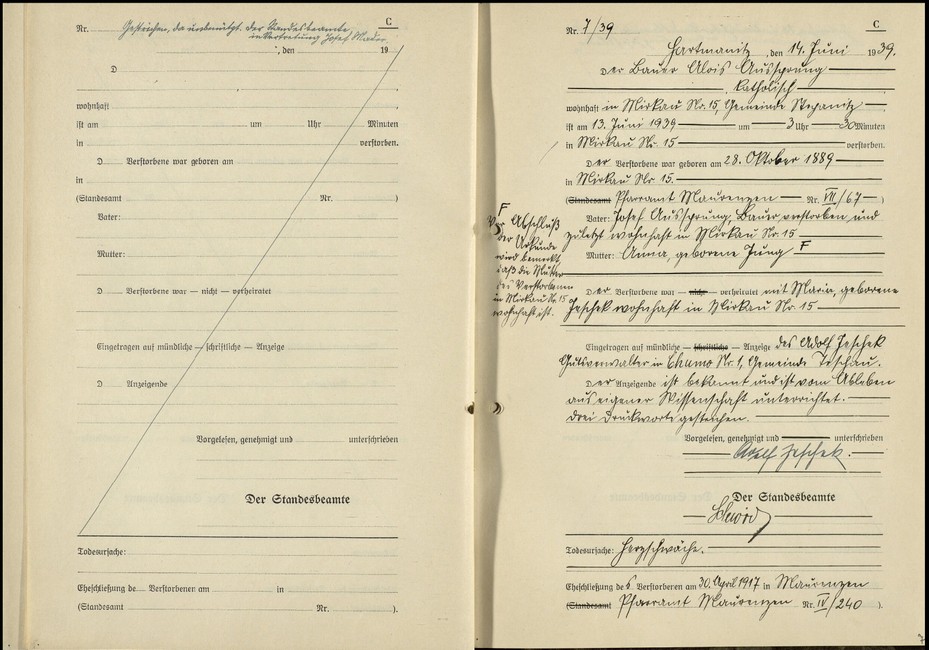 C
Nr. Gestrichen, da unbenützt. Der Standesbeamte
in Vertretung Josef
, den 19
D
wohnhaft
ist am um Uhr Minuten
in verstorben.
D Verstorbene war geboren am
in
(Standesamt Nr. )
Vater:
Mutter:
D Verstorbene war — nicht — verheiratet
Eingetragen auf mündliche — schriftliche — Anzeige
D Anzeigende
Vorgelesen, genehmigt und unterschrieben
Der Standesbeamte
Todesursache:
Eheschließung de Verstorbenen am in
(Standesamt Nr. ).
C
Nr. 7/39
Hartmanitz, den 14. Juni 1939.
Der Bauer Alois Aussprung
, katholisch
wohnhaft in Mirkau Nr. 15, Gemeinde Stepanitz
ist am 13. Juni 1939 um 3 Uhr 30 Minuten
in Mirkau Nr. 15 verstorben.
Der Verstorbene war geboren am 28. Oktober 1889
in Mirkau Nr. 15.
(Standesamt Pfarramt Maurenzen Nr. VII/67 )
Vater: Josef Aussprung, Bauer verstorben und
zuletzt wohnhaft in Mirkau Nr. 15
Mutter: Anna, geborene Jung F
F
Vor Abschluß
der Urkunde
wird bemerkt,
daß die Mutter
des Verstorbenen
in Mirkau Nr. 15
wohnhaft ist.
Der Verstorbene war — nicht — verheiratet mit Maria, geborene
Jeschek wohnhaft in Mirkau Nr. 15
Eingetragen auf mündliche — schriftliche — Anzeige des Adolf Jeschek
Gutsverwalter in Chumo Nr. 1, Gemeinde Teschau.
Der Anzeigende ist bekannt und ist vom Ableben
aus eigener Wissenschaft unterrichtet.
Drei Druckworte gestrichen.
Vorgelesen, genehmigt und unterschrieben
Adolf Jeschek.
Der Standesbeamte
Todesursache: Herzschwäche.
Eheschließung des Verstorbenen am 30. April 1917 in Maurenzen
(Standesamt Pfarramt Maurenzen Nr. IV/240 ).